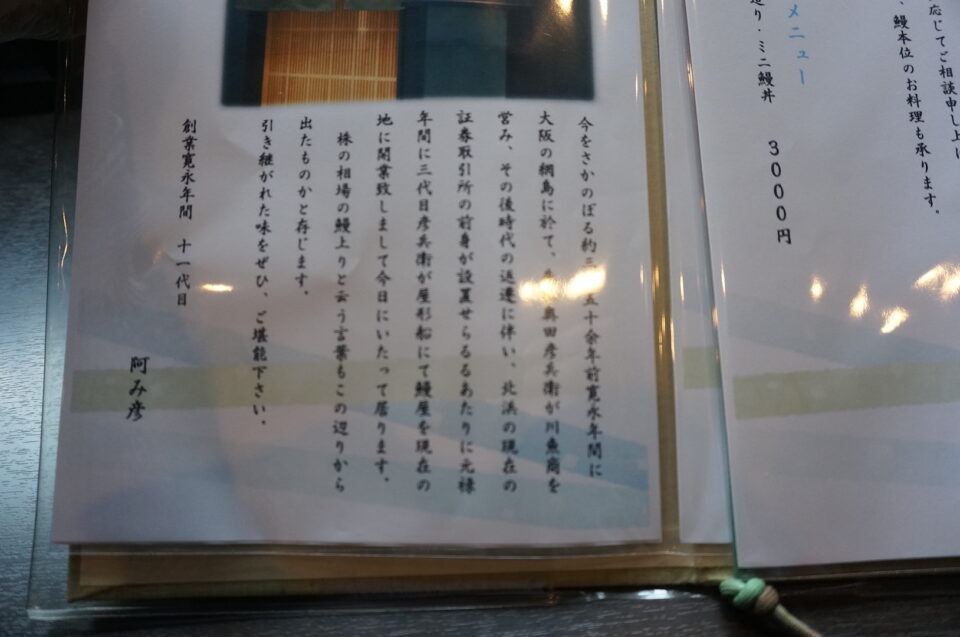 応じてご相談申し上
、鰻本位のお料理も承ります。
メニュー
造り・ミニ鰻丼 3000円
今をさかのぼる約三 五十余年前寛永年間に
大阪の網島に於て、 奥田彦兵衛が川魚商を
営み、その後時代の返遷に伴い、北浜の現在の
証券取引所の前身が設置せらるるあたりに元禄
年間に三代目彦兵衛が屋形船にて鰻屋を現在の
地に開業致しまして今日にいたって居ります。
株の相場の鰻上りと云う言葉もこの辺りから
出たものかと存じます。
引き継がれた味をぜひ、ご堪能下さい。
創業寛永年間 十一代目
阿み彦